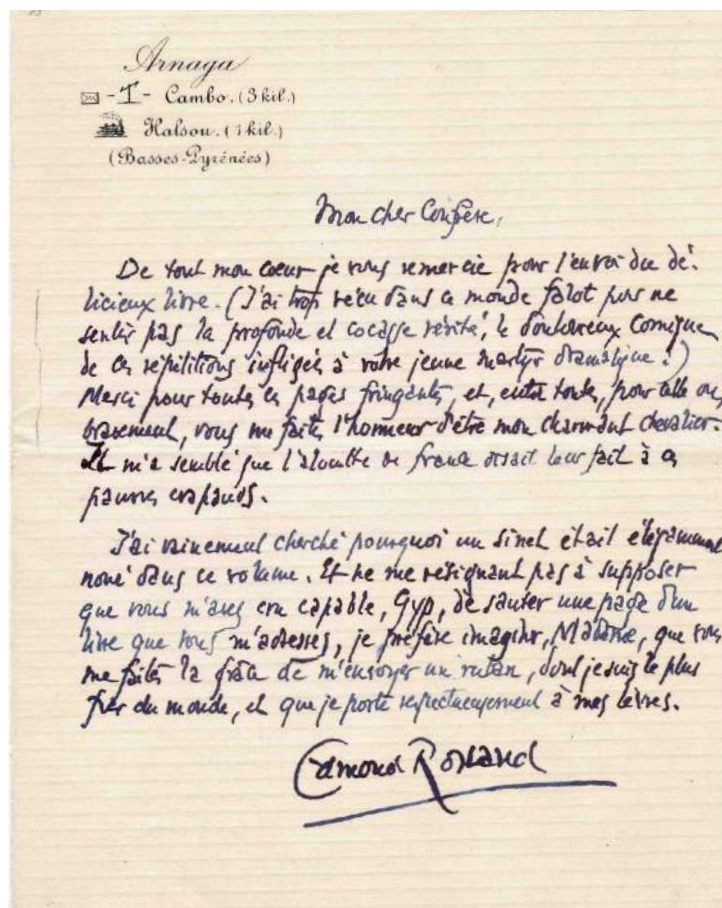 Arnaga
-T- Cambo. (3 kil.)
Halsou. (1 kil.)
(Basses-Pyrénées)
Mon cher Confrère,
De tout mon coeur je vous remercie pour l'envoi du dé-
licieux livre. (J'ai trop vécu dans ce monde falot pour ne
sentir pas la profonde et cocasse vérité, le douloureux comique
de ces répétitions infligées à votre jeune martyr dramatique !)
Merci pour toutes ces pages fringantes, et, entre toutes, pour celle où,
bravement, vous me faites l'honneur d'être mon charmant chevalier.
Il m'a semblé que l'alouette de France disait leur fait à ces
pauvres crapauds.
J'ai vainement cherché pourquoi un signet était élégamment
noué dans ce volume. Et ne me résignant pas à supposer
que vous m'avez cru capable, Gyp, de sauter une page d'un
livre que vous m'adressez, je préfère imaginer, Madame, que vous
me faites la grâce de m'envoyer un ruban, dont je suis le plus
fier du monde, et que je porte respectueusement à mes lèvres.
Edmond Rostand